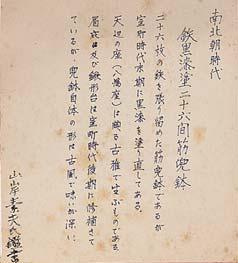 南北朝時代
鉄黒漆塗二十六間筋兜鉢
二十六枚の鉄を張り留めた筋兜鉢であるが
室町時代末期に黒漆を塗り直してある。
天辺の座（八幡座）は頗る古雅で生ぶものである。
眉庇は及び鍬形台は室町時代後期に修補されて
ているが、兜鉢自体の形は古風で味いが深い。
山岸素夫氏鑑書